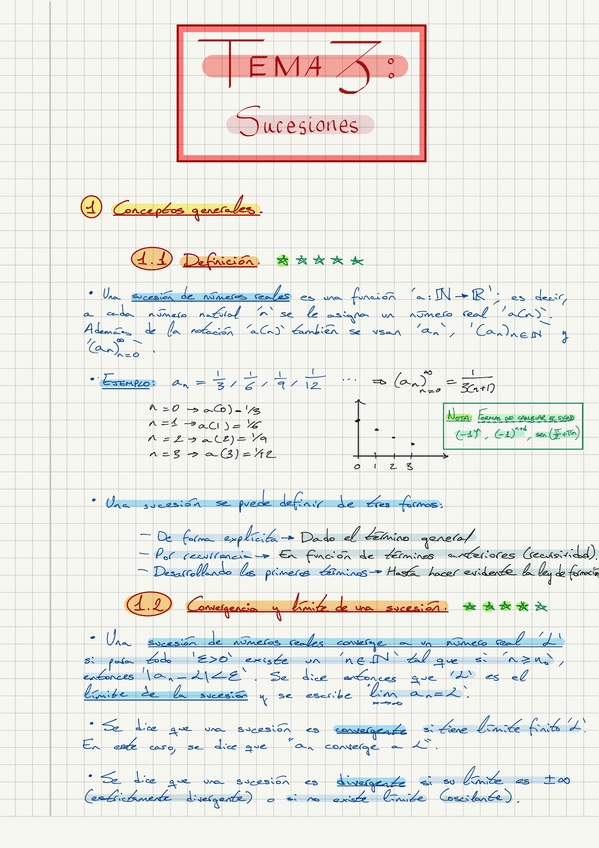 TEMA 3:
Sucesiones
1 Conceptos generales.
1.1 Definición.
• Una sucesión de números reales es una función 'a: ℕ → ℝ'; es decir,
a cada número natural 'n' se le asigna un número real 'a(n)'.
Además de la notación 'a(n)' también se usan 'aₙ', '(aₙ)n∈ℕ' y
'(aₙ)^∞_{n=0}'.
• EJEMPLO: aₙ = 1/3, 1/6, 1/9, 1/12 ... ⇒ (aₙ)^∞_{n=0} = 1/3(n+1)
n = 0 → a(0) = 1/3
n = 1 → a(1) = 1/6
n = 2 → a(2) = 1/9
n = 3 → a(3) = 1/12
0 1 2 3
NOTA: FORMAS DE CAMBIAR EL SIGNO
(-1)ⁿ, (-1)ⁿ⁺¹, sen(π/2+πn)
• Una sucesión se puede definir de tres formas:
— De forma explícita → Dado el término general
— Por recurrencia → En función de términos anteriores (recursividad).
— Desarrollando los primeros términos → Hasta hacer evidente la ley de formación
1.2 Convergencia y límite de una sucesión.
• Una sucesión de números reales converge a un número real 'L'
si para todo 'ε>0' existe un 'n∈ℕ' tal que si 'n≥n₀',
entonces '|aₙ-L|<ε'. Se dice entonces que 'L' es el
límite de la sucesión y se escribe 'lim n→∞ aₙ=L'.
• Se dice que una sucesión es convergente si tiene límite finito 'L'.
En este caso, se dice que "aₙ converge a L".
• Se dice que una sucesión es divergente si su límite es ±∞
(estrictamente divergente) o si no existe límite (oscilante).